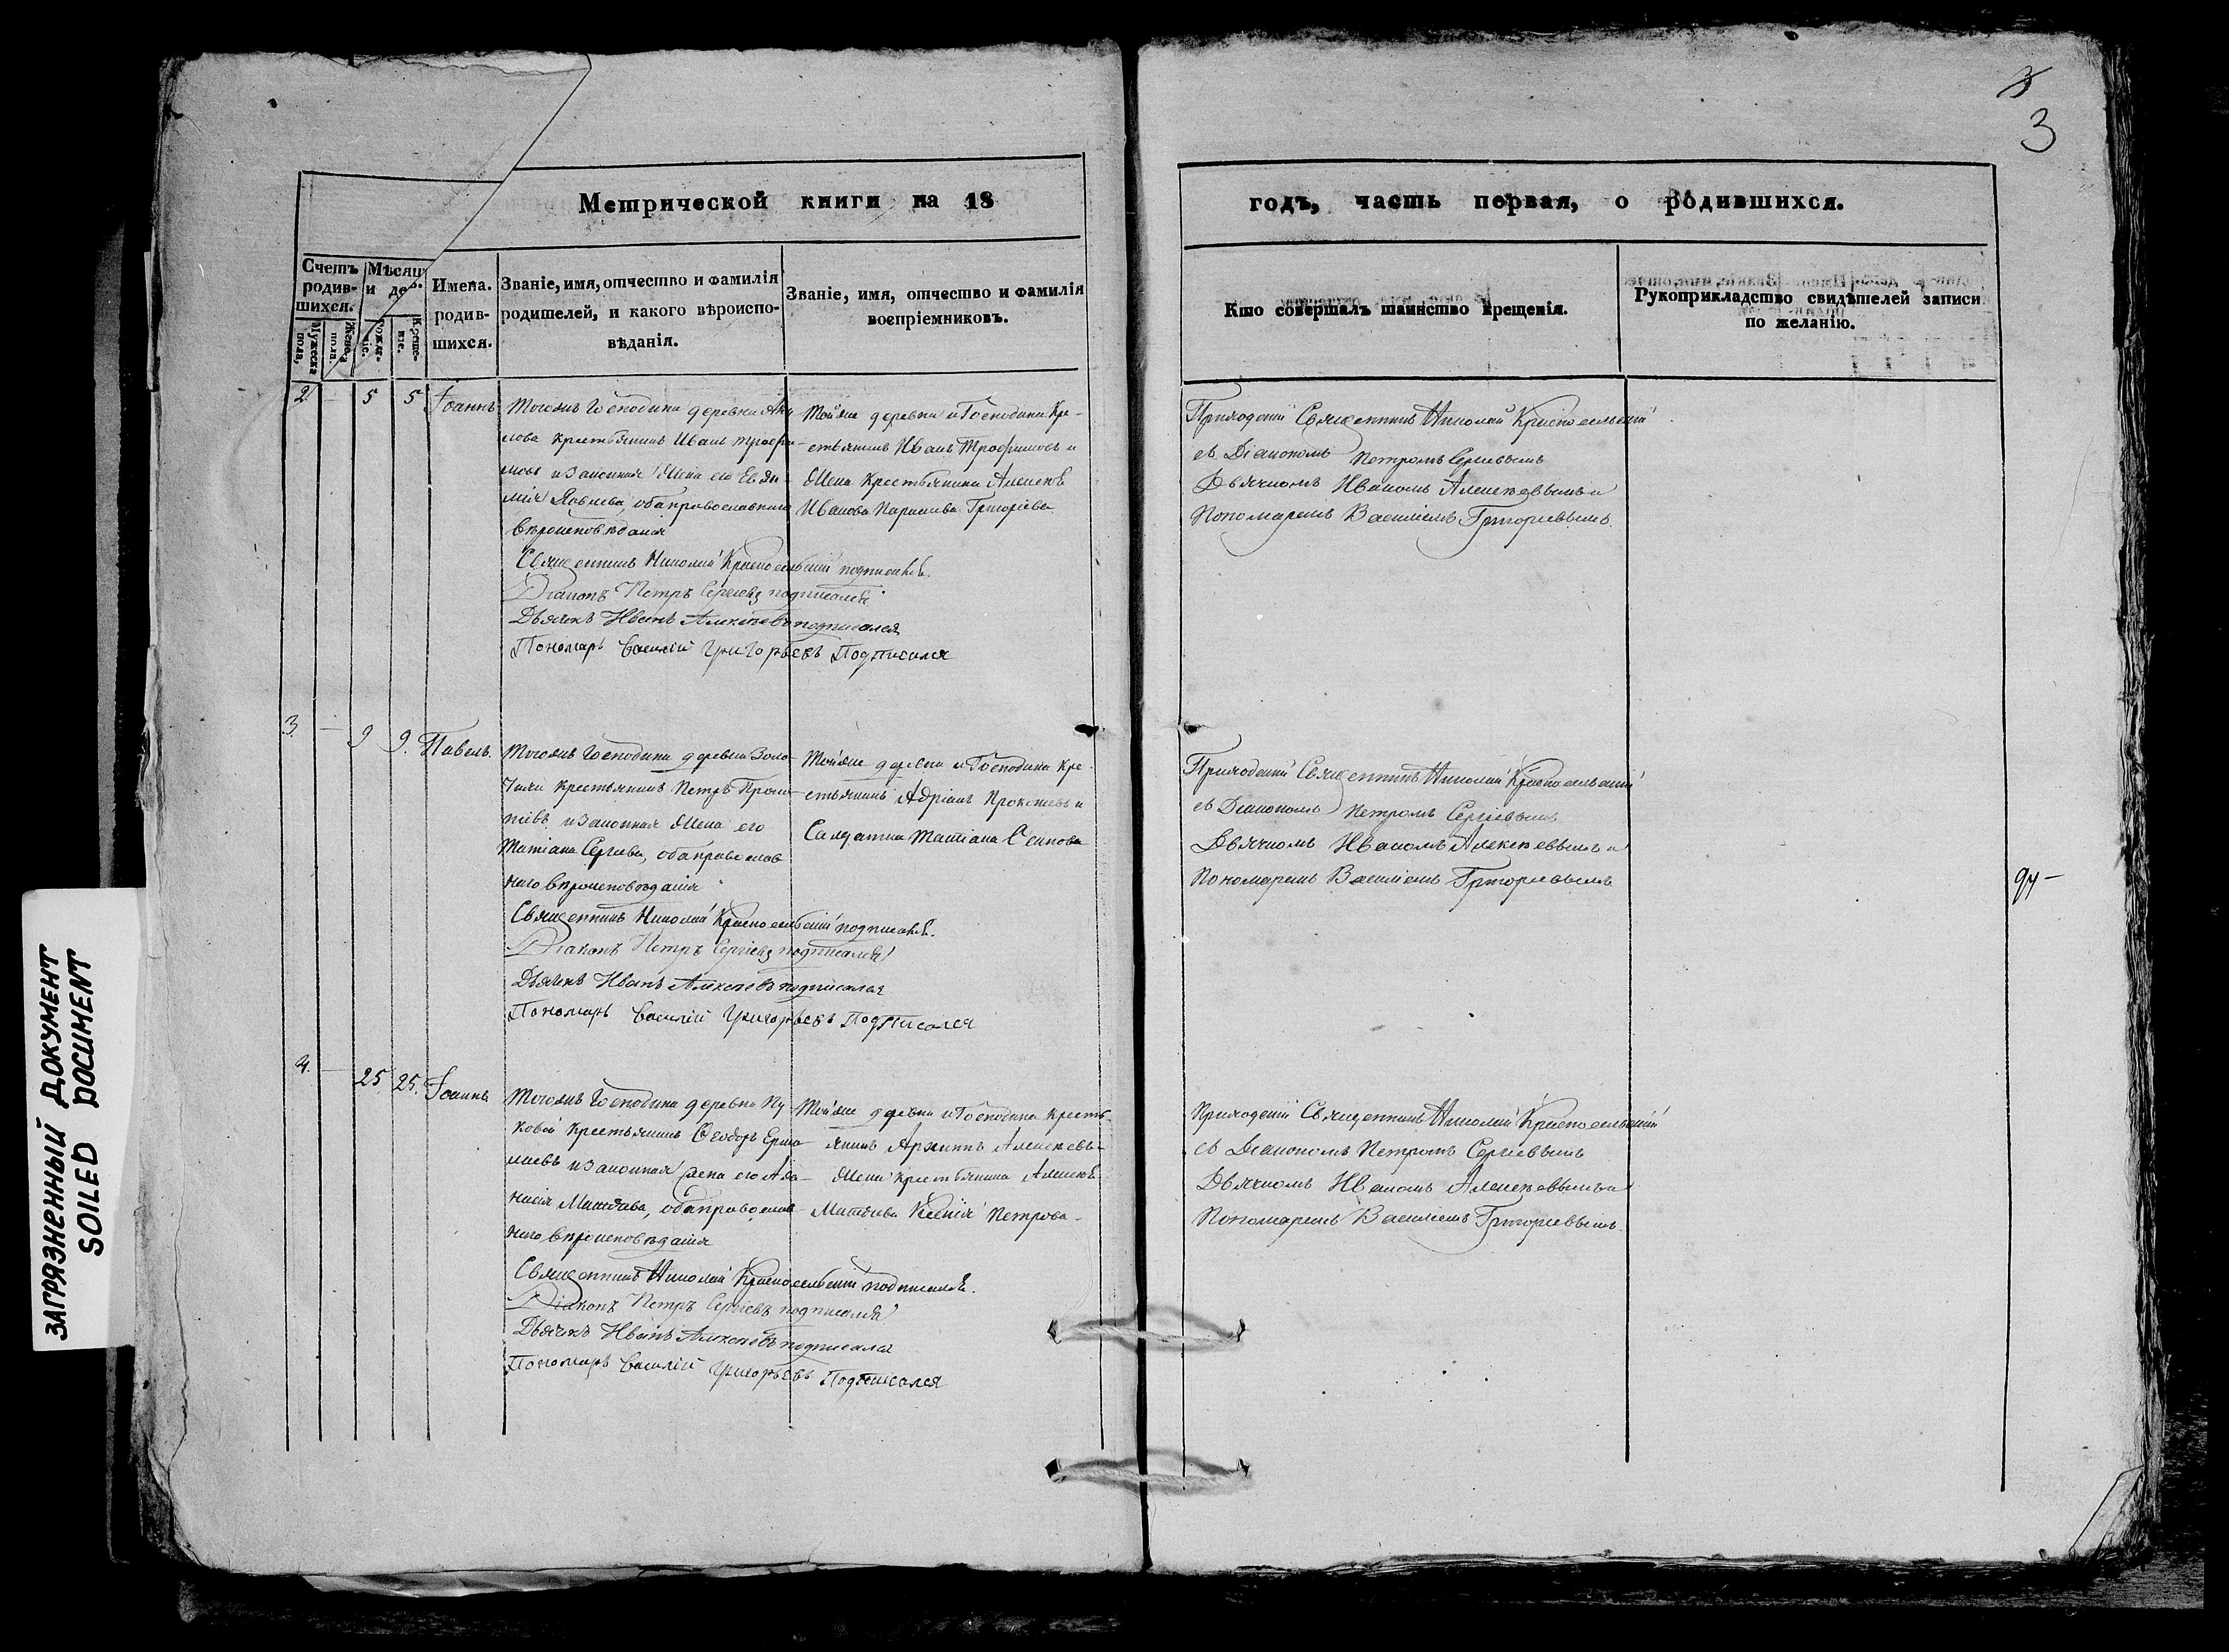 3
Метрической книги на 18
годъ, часть первая, о родившихся.
Счетъ родив-
шихся.
Мужеска пола,
Женска пола.
Мѣсяц
и де
Рожде-
ніе.
Креще-
ніе.
Имена.
родив-
шихся.
Званіе, имя, отчество и фамилія
родителей, и какого вѣроиспо-
вѣданія.
Званіе, имя, отчество и фамилія
воспріемниковъ.
Кто совершалъ таинство крещенія.
Рукоприкладство свидѣтелей записи
по желанію.
2 — 5 5 Іоаннъ
Тогожъ Господина деревни
лова крестьянинъ Иванъ Трофи-
мовъ и законная жена его Евдо-
мія Яковлева, оба православнаго
вѣроисповѣданія
Священникъ Николай Красносельскій подписался.
Діаконъ Петръ Сергіевъ подписался
Дьячекъ Иванъ Алексѣевъ подписался
Пономарь Василій Григорьевъ Подписался
Тойже деревни и Господина Кре-
стьянинъ Иванъ Трофимовъ и
жена Крестьянина Алексѣя
Иванова Параскева Григоріева
Приходскій Священникъ Николай Красносельскій
съ Діакономъ Петромъ Сергіевымъ
Дьячкомъ Иваномъ Алексѣевымъ и
Пономаремъ Василіемъ Григоріевымъ.
3. — 9 9. Павелъ.
Тогожъ Господина деревни Золо-
тихи крестьянинъ Петръ Проко-
піевъ и законная жена его
Татіана Сергіева, оба православ-
наго вѣроисповѣданія
Священникъ Николай Красносельскій подписался.
Діаконъ Петръ Сергіевъ подписался
Дьячекъ Иванъ Алексѣевъ подписался
Пономарь Василій Григорьевъ Подписался
Тойже деревни и Господина Кре-
стьянинъ Адріанъ Прокопіевъ и
Салдатка Татіана Осипова
Приходскій Священникъ Николай Красносельскій
съ Діакономъ Петромъ Сергіевымъ
Дьячкомъ Иваномъ Алексѣевымъ и
Пономаремъ Василіемъ Григоріевымъ
4. — 25 25. Іоаннъ
Тогожъ Господина деревни Пу-
ковой Крестьянинъ Ѳеодоръ Ермо-
лаевъ и законная жена его Аѳа-
насія Матвѣева, оба православ-
наго вѣроисповѣданія
Священникъ Николай Красносельскій подписался.
Діаконъ Петръ Сергіевъ подписался
Дьячекъ Иванъ Алексѣевъ подписался
Пономарь Василій Григорьевъ Подписался
Тойже деревни и Господина кресть-
янинъ Архиппъ Алексѣевъ и
жена крестьянина Алексѣя
Матвѣева Ксенія Петрова
Приходскій Священникъ Николай Красносельскій
съ Діакономъ Петромъ Сергіевымъ
Дьячкомъ Иваномъ Алексѣевымъ и
Пономаремъ Василіемъ Григоріевымъ.
ЗАГРЯЗНЕННЫЙ ДОКУМЕНТ
SOILED DOCUMENT